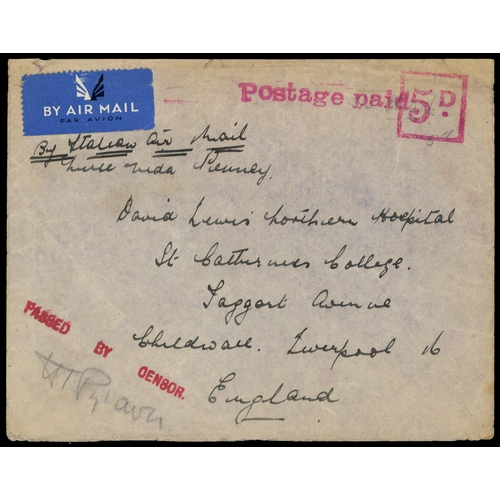 BY AIR MAIL
PAR AVION
Postage paid 5D.
By Italian Air Mail
Nurse Neda Penney.
David Lewis Northern Hospital
St. Catherines College.
Taggart Avenue
Childwall. Liverpool 16
England
PASSED BY CENSOR.